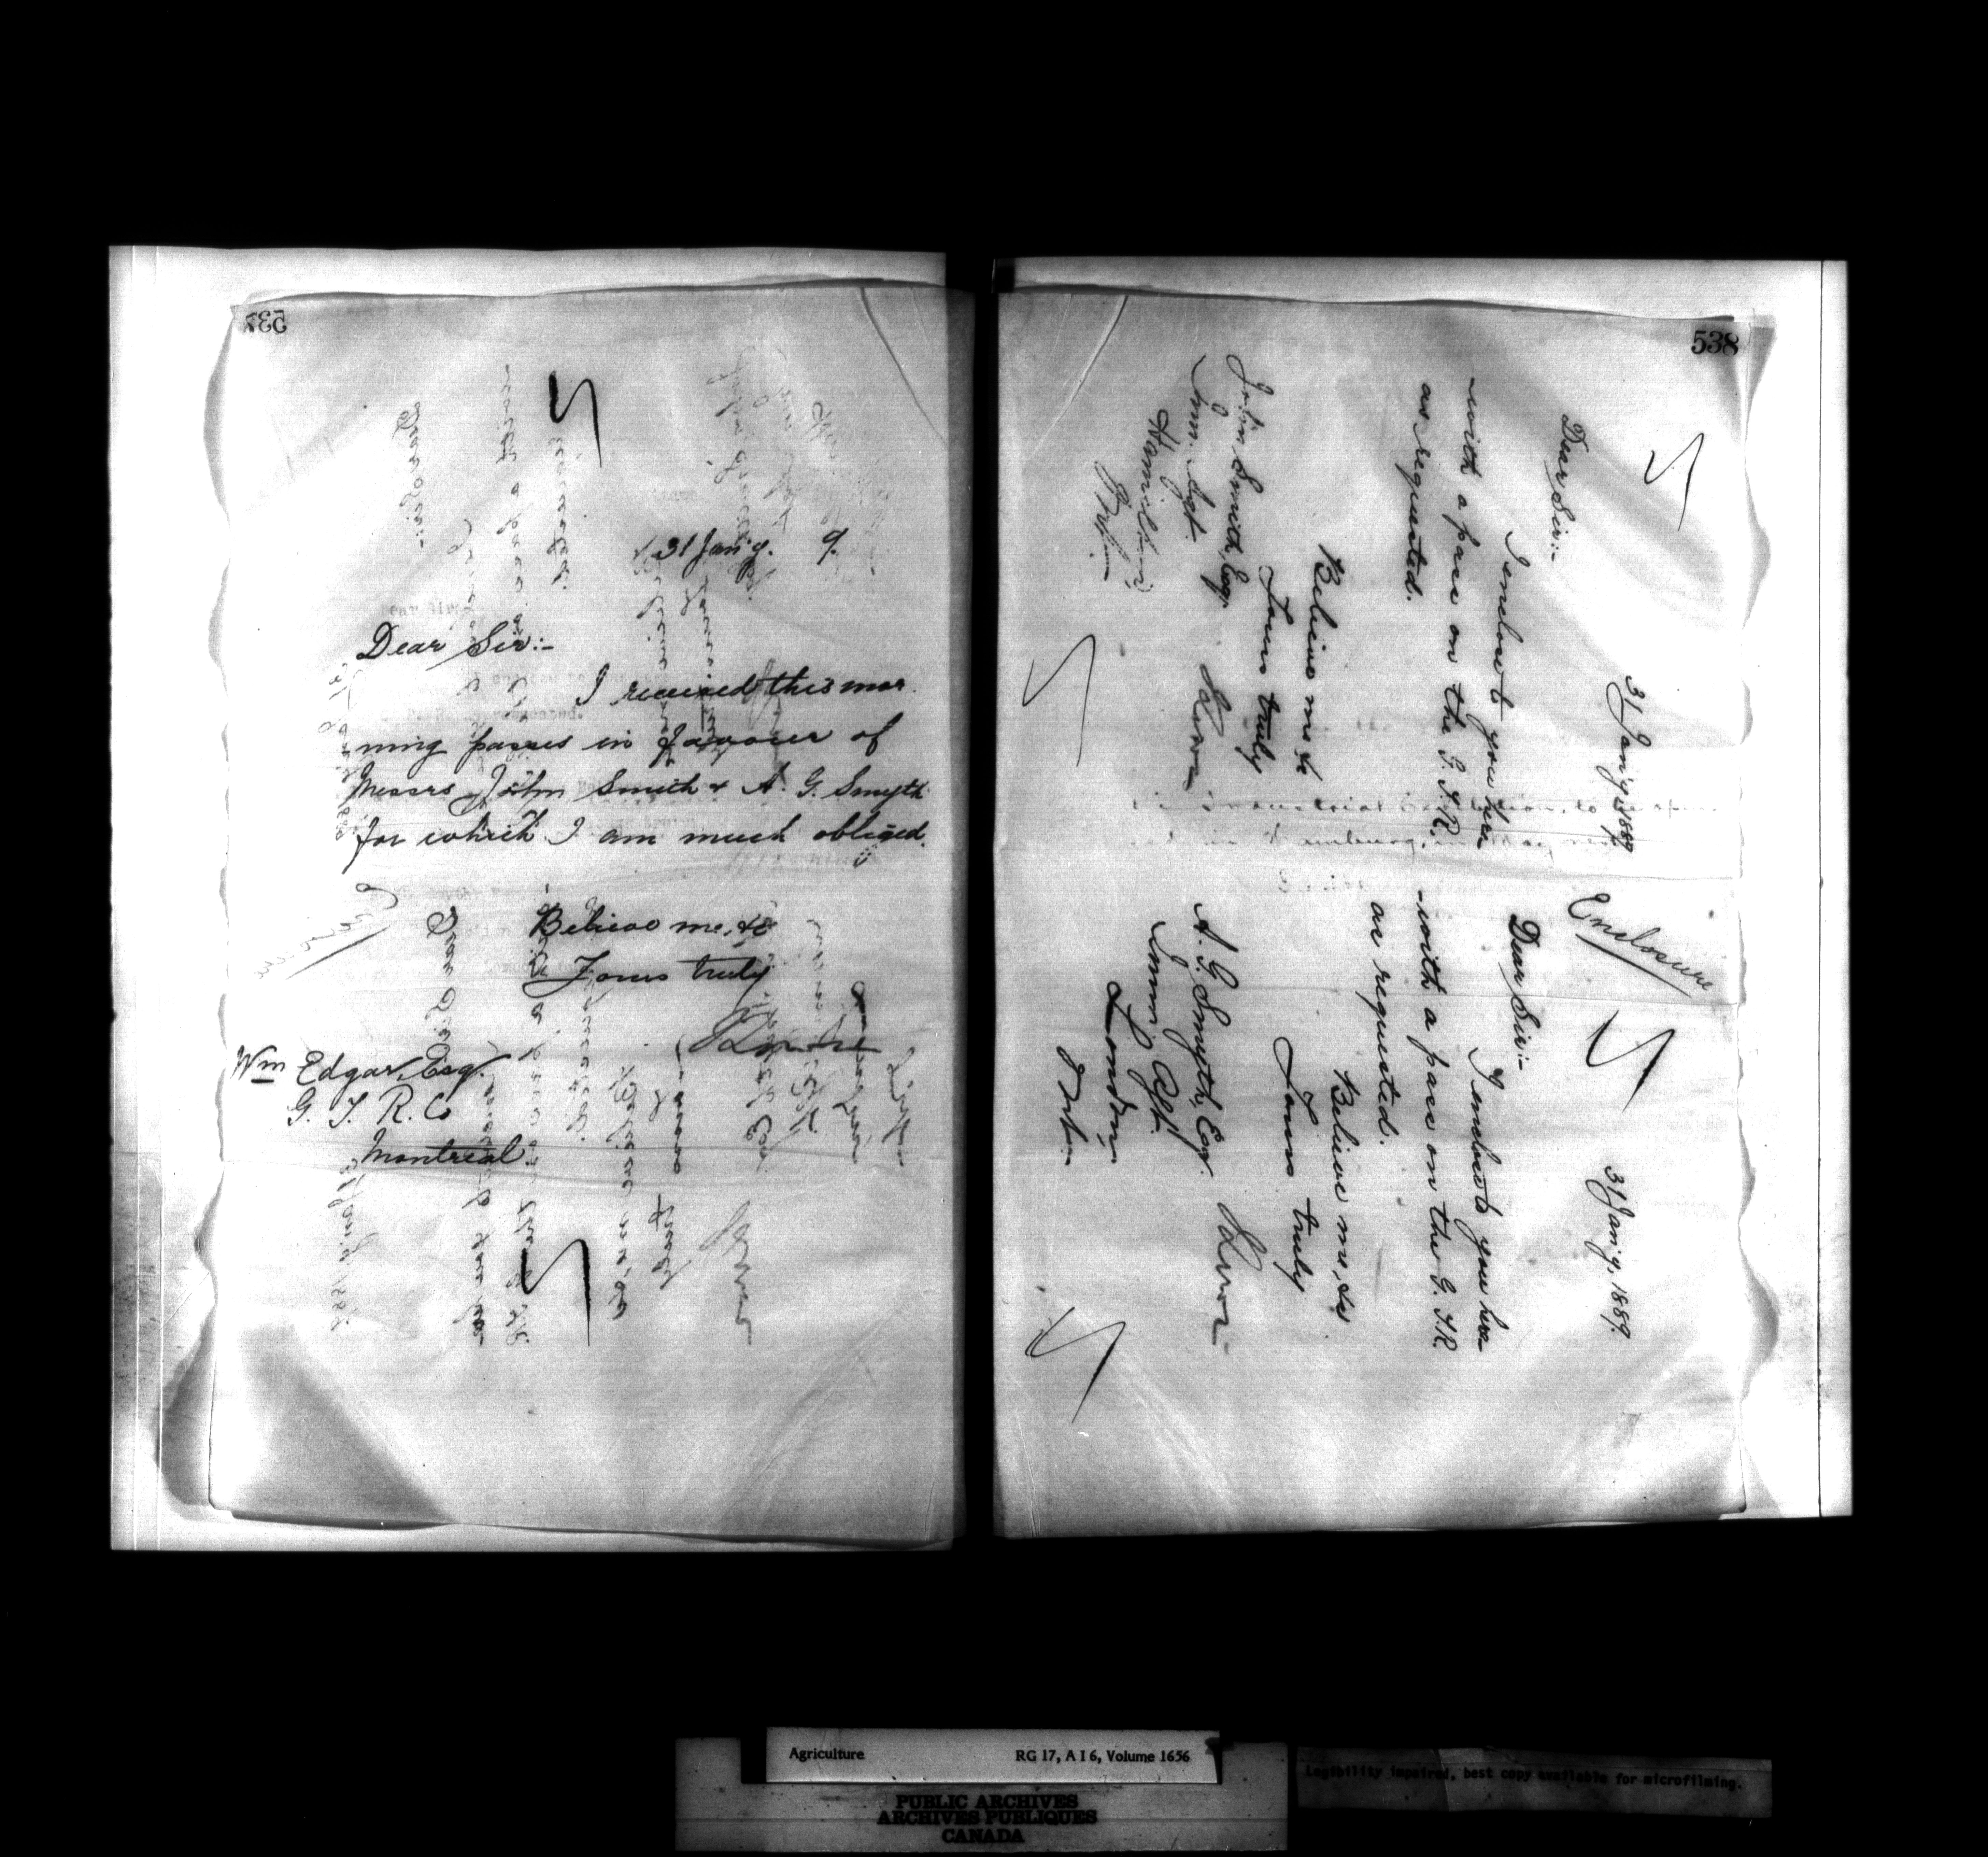 31 Jan'y. 9.
Dear Sir:-
I received this mor
ning passes in favour of
Messrs John Smith & A. G. Smyth
for which I am much obliged.
Believe me, &c
Yours truly
Wm Edgar, Esq.
G. T. R. Co
Montreal
538
31 Jan'y, 1889.
Dear Sir:-
I enclose to you here
-with a pass on the G. T. R.
as requested.
Believe me &c
Yours truly
John Smith, Esq.
Imm. Agt.
Hamilton,
Ont.
Enclosure
31 Jan'y, 1889.
Dear Sir:-
I enclose to you here
-with a pass on the G. T. R.
as requested.
Believe me, &c
Yours truly
A. G. Smyth, Esq.
Imm. Agt.
London,
Ont.
Agriculture RG 17, A I 6, Volume 1656
Legibility impaired, best copy available for microfilming.
PUBLIC ARCHIVES
ARCHIVES PUBLIQUES
CANADA